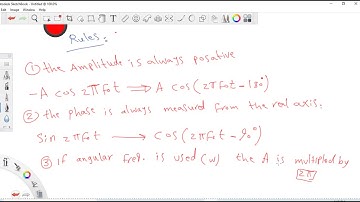 Rules:
① the Amplitude is always posative
-A cos 2πfot ⟹ A cos(2πfot-180°)
② the phase is always measured from the real axis:
Sin 2πfot → cos(2πfot-90°)
③ If angular freq. is used (w) the A is multipled by
2π